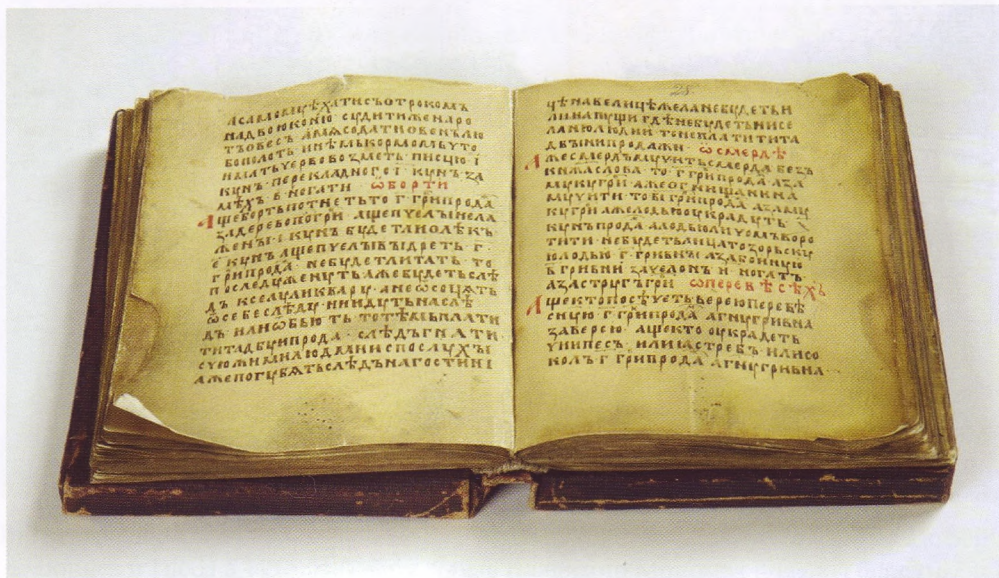 АСАМОМУѢХАТИСЪОТРОКОМЪ
НАДВОЮКОНЮ · СУДИТИЖЕНАРО
ТЪОВЕСЪ · АМѦСОДАТИОВЕНЪЛЮ
БОПОЛОТЬ · ИНѢМЬКОРМОМЬЧТО
ИМАТЬЧЕРВОВОЗМЕТЬ · ПИСЦЮ · І
КУНЪ · ПЕРЕКЛАДНОГО · Г · КУНЪ · ЗА
МѢХЪ · В · НОГАТИ ѠБОРТИ
АЩЕБОРТЬПОТНЕТЬТО · Г · ГРИПРОДА
ЗАДЕРЕВОПОЛГРИ · АЩЕПЧЕЛЫВЕЛА
ЖЕНЫ · І · КУНЪ БУДЕТЛИОЛѢКЪ ·
Е · КУНЪ АЩЕПЧЕЛЫВЫДРЕТЬ · Г ·
ГРИПРОДА · НЕБУДЕТЛИТАТЬ · ТО
ПОСЛЕДУЖЕНУТЬАЖЕБУДЕТЬСЛѢ
ДЪ КСЕЛУИЛИКВАРУ · АНЕѠСОЦАТЬ
ѠСЕБЕСЛѢДУ · НИИДУТЬНАСЛѢ
ДЪ · ИЛИѠБЬЮТЬ ТОТѢМЬПЛАТИ
ТИТАДБУИПРОДА · СЛѢДЪГНАТИ
СЧЮЖИМИЛЮДМИИСПОСЛУХЫ
АЖЕПОГУБѦТЬСЛѢДЪНАГОСТИНІ
28
ЧѢНАВЕЛИЦѢЖЕЛАНЕБУДЕТЬИ
ЛИНАПУЩИГДѢНЕБУДЕТЬНИСЕ
ЛАНИЛЮДИИ · ТОНЕПЛАТИТИТА
ДБЫНИПРОДАЖИ · ѠСМЕРДѢ
АЖЕСМЕРДЪМУЧИТЬСМЕРДА БЕЗЪ
КНѦЖАСЛОВА · ТО · Г · ГРИПРОДА · АЗА
МУКУГРИ · АЖЕОГНИЩАНИНА
МУЧИТИ · ТОВІ ГРИПРОДА · АЗАМУ
КУГРИ АЖЕЛОДЬЮОУКРАДУТЬ · З ·
КУНЪПРОДА · АЛОДЬЮЛИЧОМЬВОРО
ТИТИ · НЕБУДЕТЬЛИЦАТОЗОРЬСКУ
ЮЛОДЬЮ · Г · ГРИВНЫ · АЗАБОИНУЮ
В · ГРИВНЫ · ЗАЧЕЛОНЪ · И · НОГАТЪ ·
АЗАСТРУГЪГРИ ѠПЕРЕВѢСѢХЪ
АЩЕКТОПОСѢЧЕТЬВЕРЕЮПЕРЕВѢ
СНУЮ · Г · ГРИПРОДА · АГНУГРИВНА
ЗАВЕРЕЮ · АЩЕКТО ОУКРАДЕТЬ
ЧИИПЕСЪ · ИЛИАСТРЕБЪ · ИЛИСО
КОЛЪ · Г · ГРИПРОДА · АГНУГРИВНА